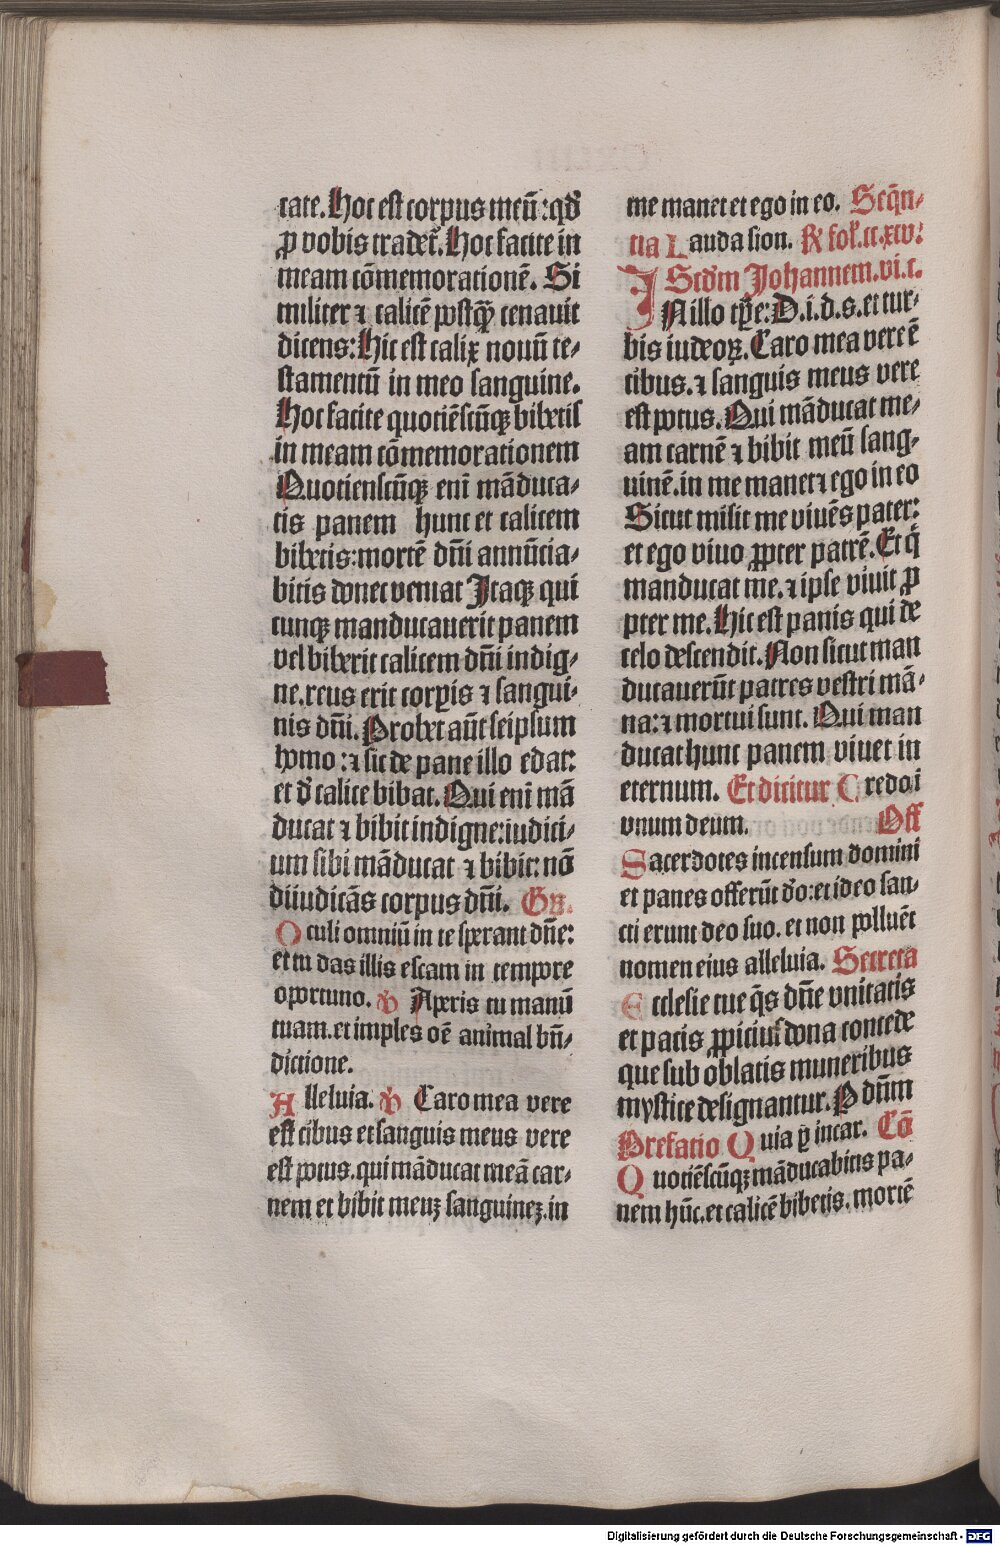 cate. Hoc est corpus meū: qđ
ꝓ vobis tradet᷑. Hoc facite in
meam cōmemorationē. Si
militer ⁊ calicē postꝙ̄ cenauit
dicens: Hic est calix nouū te⸗
stamentū in meo sanguine.
Hoc facite quotiēscūqꝫ bibetis
in meam cōmemorationem
Quotienscūqꝫ eni māduca⸗
tis panem hunc et calicem
bibetis: mortē dn̄i annūcia⸗
bitis donec veniat Itaqꝫ qui
cunqꝫ manducauerit panem
vel biberit calicem dn̄i indig⸗
ne. reus erit corpis ⁊ sangui⸗
nis dn̄i. Probet aūt seipsum
homo: ⁊ sic de pane illo edat:
et đ calice bibat. Qui eni mā
ducat ⁊ bibit indigne: iudici⸗
um sibi māducat ⁊ bibit: nō
diiudicās corpus dn̄i. Gr̄.
Oculi omniū in te sperant dn̄e:
et tu das illis escam in tempore
oportuno. ℣ Aperis tu manū
tuam. et imples oē animal bn̄⸗
dictione.
Alleluia. ℣ Caro mea vere
est cibus et sanguis meus vere
est potus. qui māducat meā car⸗
nem et bibit meuꝫ sanguineꝫ. in
me manet et ego in eo. Seq̄n⸗
tia Lauda sion. R̸ fol. cc. xcv.
Scd̄m Johannem. vi. c.
IN illo tp̄e: D. i. d. s. et tur⸗
bis iudeoꝝ. Caro mea vere ē
cibus. ⁊ sanguis meus vere
est potus. Qui māducat me⸗
am carnē ⁊ bibit meū sang⸗
uinē. in me manet ⁊ ego in eo
Sicut misit me viuēs pater:
et ego viuo ꝓpter patrē. Et q̄
manducat me. ⁊ ipse viuit ꝓ
pter me. Hic est panis qui de
celo descendit. Non sicut man
ducauerūt patres vestri mā⸗
na: ⁊ mortui sunt. Qui man
ducat hunc panem viuet in
eternum. Et dicitur Credo ī
vnum deum. Off
Sacerdotes incensum domini
et panes offerūt đo: et ideo san⸗
cti erunt deo suo. et non polluēt
nomen eius alleluia. Secreta
Ecclesie tue q̄s dn̄e vnitatis
et pacis ꝓpicius dona concede
que sub oblatis muneribus
mystice designantur. P dn̄m
Prefatio Quia ꝑ incar. Cō
Quotiēscūqꝫ māducabitis pa⸗
nem hūc. et calicē bibetis. mortē
Digitalisierung gefördert durch die Deutsche Forschungsgemeinschaft - DFG